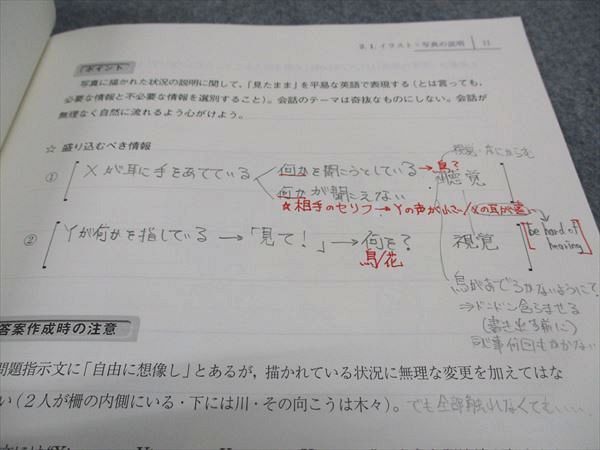 2.1. イラスト・写真の説明 11
ポイント
写真に描かれた状況の説明に関して、「見たまま」を平易な英語で表現する(とは言っても、
必要な情報と不必要な情報を選別すること)。会話のテーマは奇抜なものにしない。会話が
無理なく自然に流れるよう心がけよう。
☆ 盛り込むべき情報
① Xが耳に手をあてている 何かを聞こうとしている → 鳥? 聴覚
何かが聞こえない
☆相手のセリフ → Yの声が小さい/Xの耳が遠い
be hard of hearing
② Yが何かを指している → 「見て!」 → 何を? 視覚
鳥/花
⇒ドンドン
(書き出す前に)
答案作成時の注意
問題指示文に「自由に想像し」とあるが, 描かれている状況に無理な変更を加えてはな
い(2人が柵の内側にいる・下には川・その向こうは木々)。でも全部触れなくてもいい…